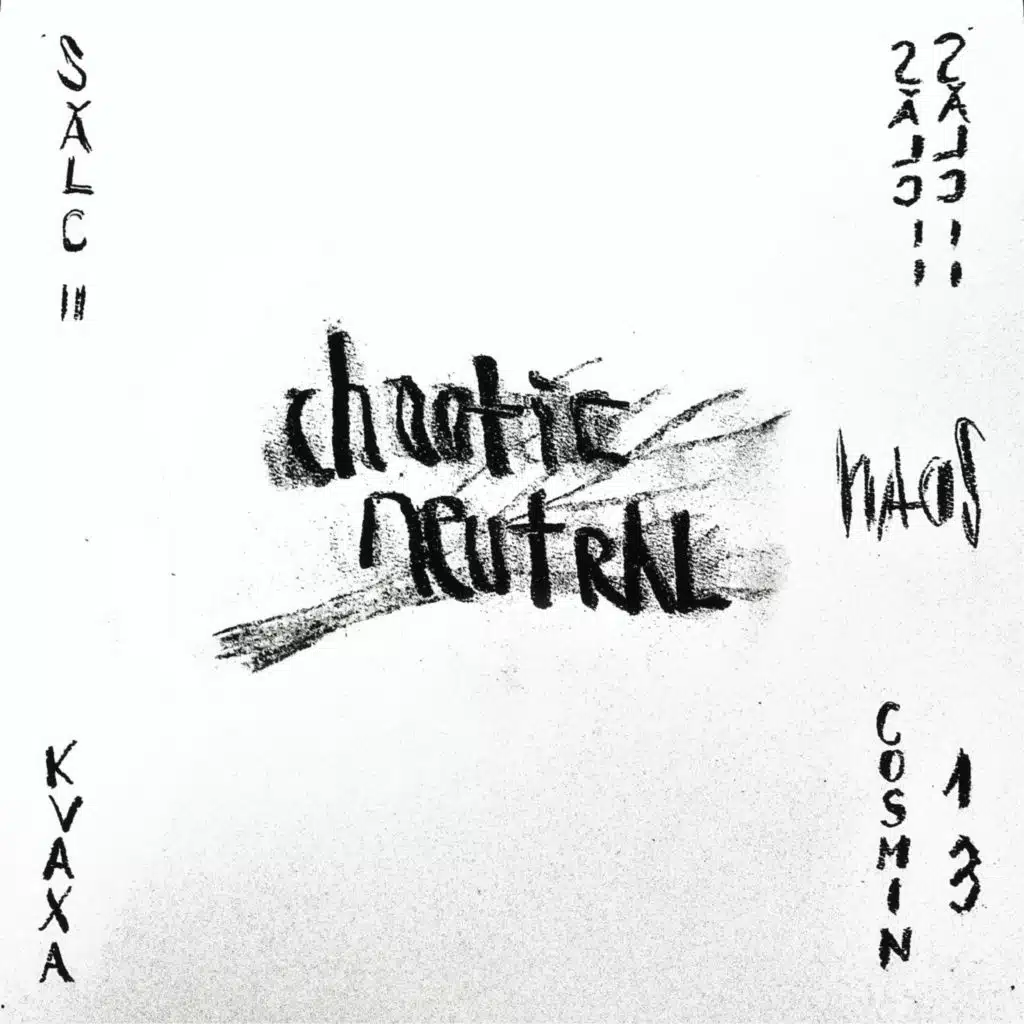 SĂLC II
SĂLC II
SĂLC II
chaotic
neutRAL
hAOS
KVAXA
COSMIN
13